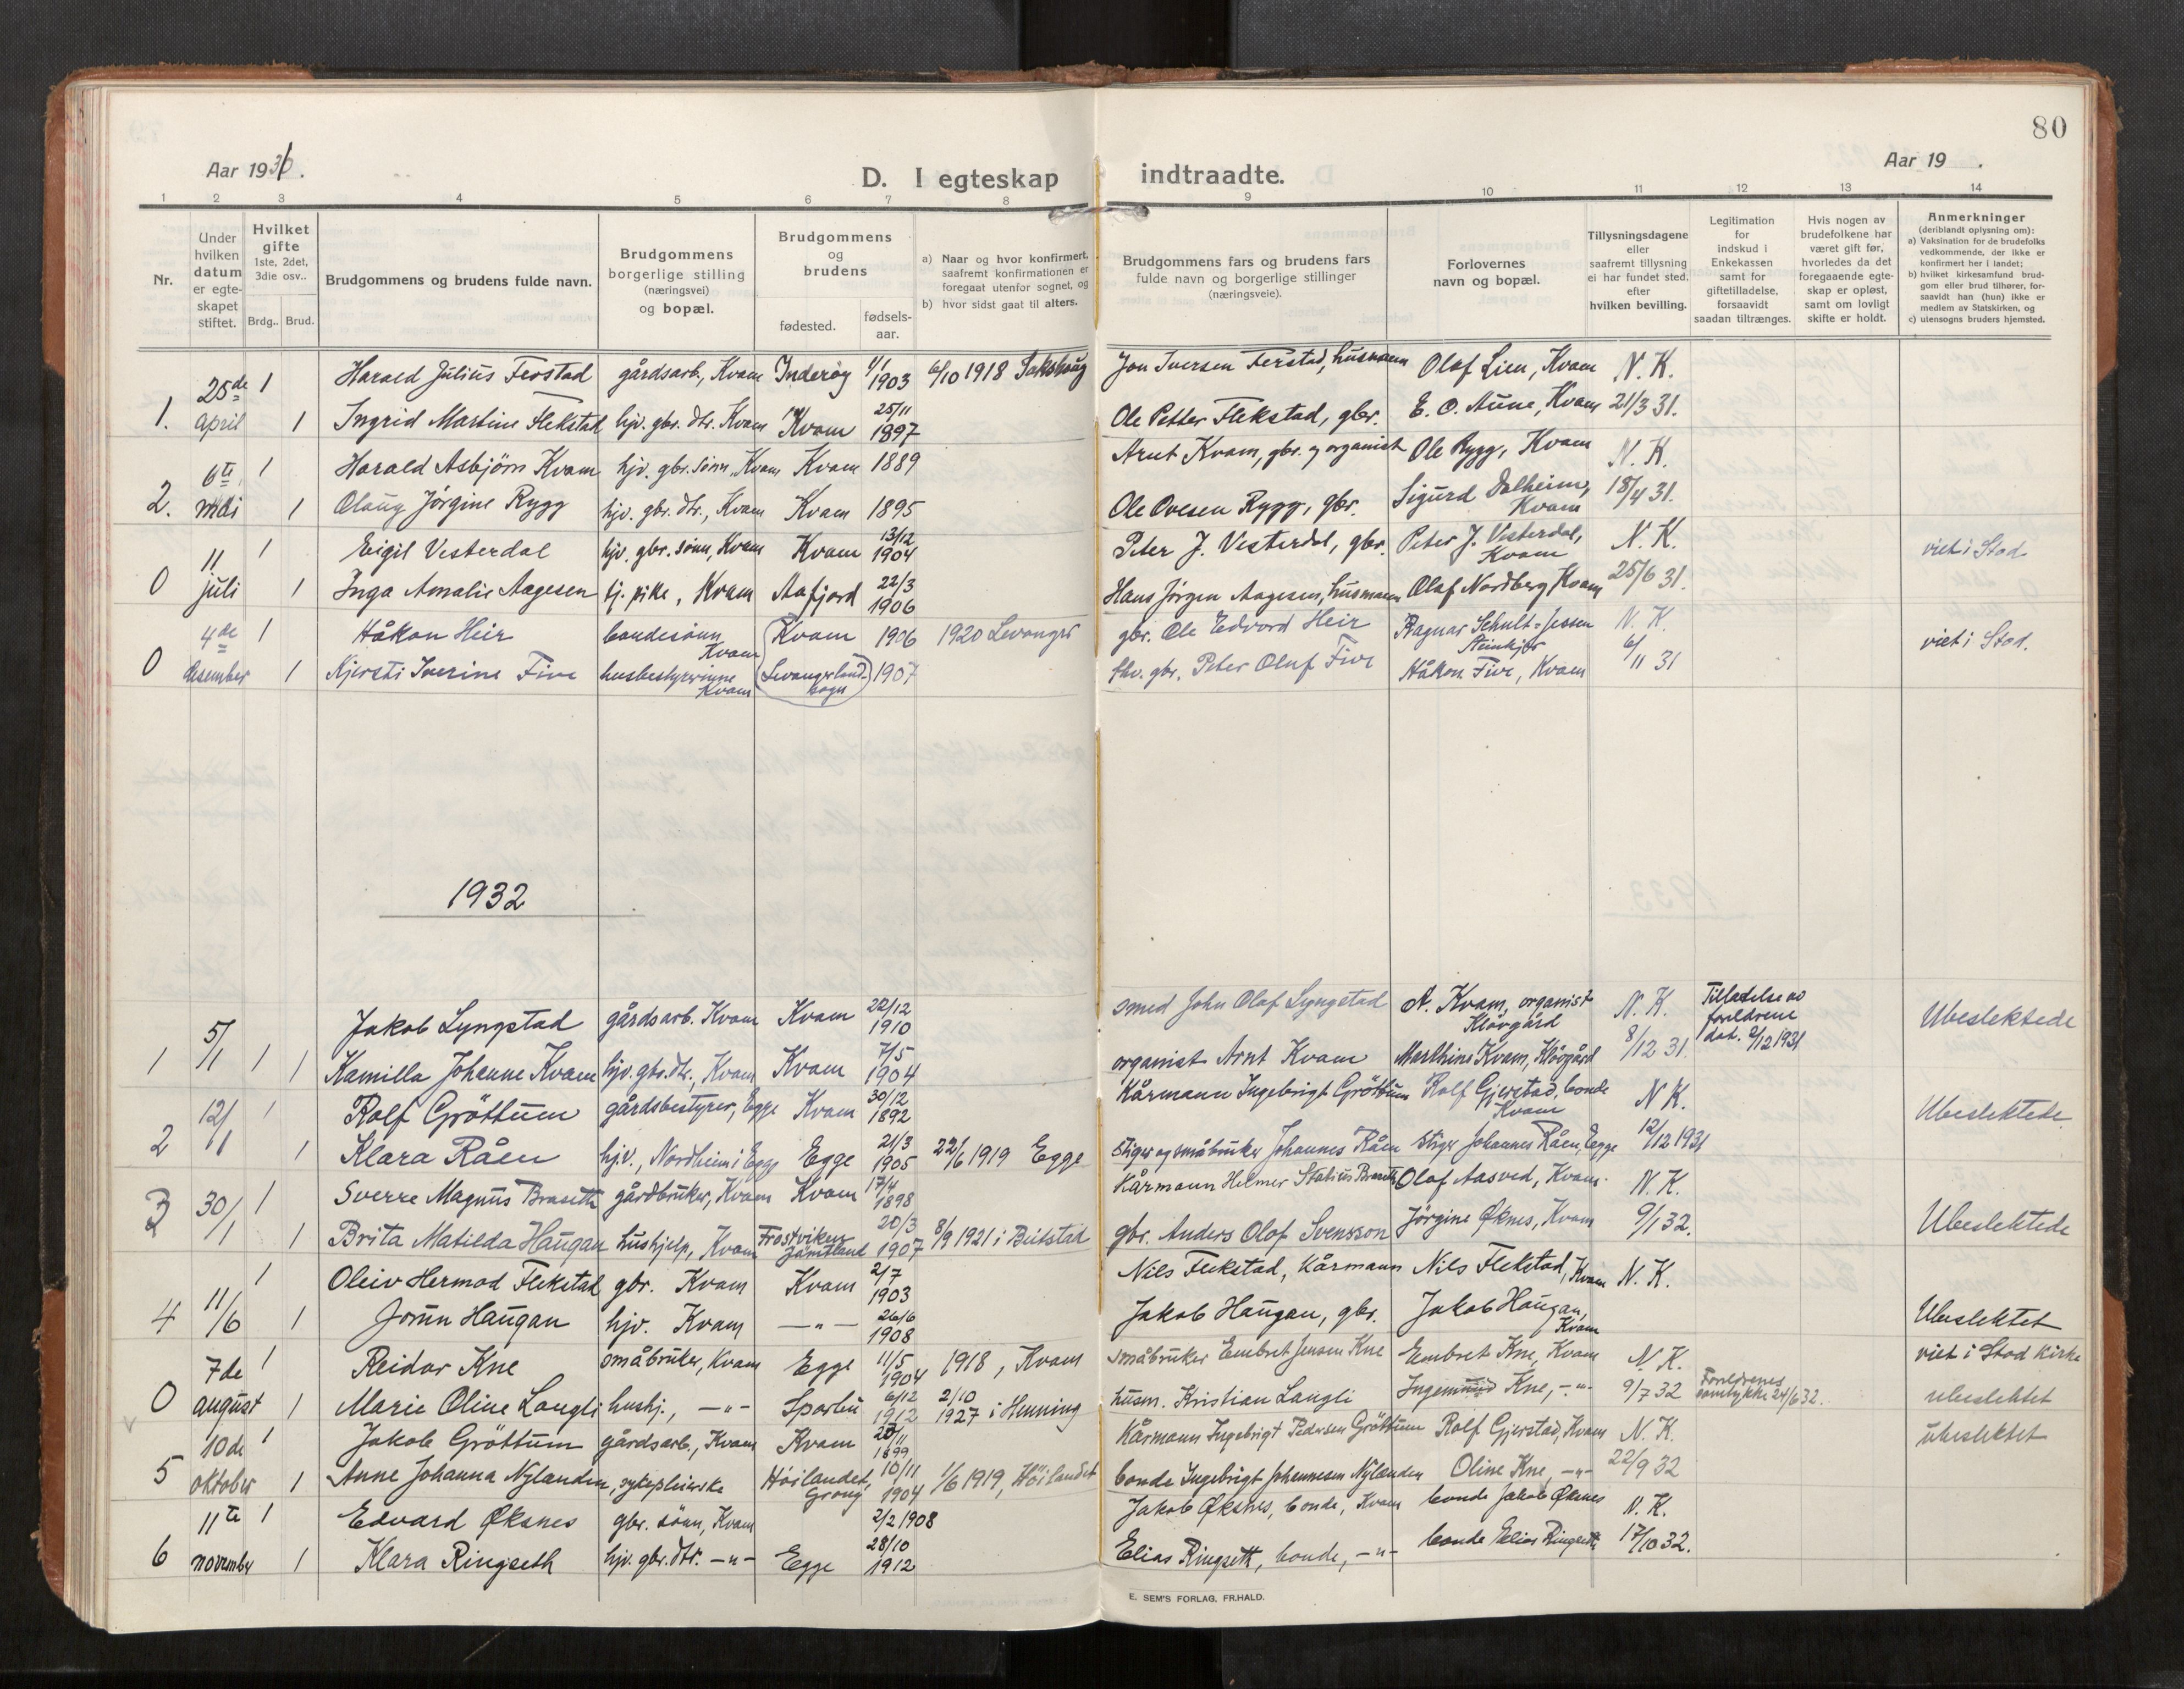 80
Aar 1931.
D. I egteskap indtraadte.
Aar 19 .
1 2 3 4 5 6 7 8 9 10 11 12 13 14
Nr.
Under hvilken datum er egteskapet stiftet.
Hvilket gifte 1ste, 2det, 3die osv..
Brdg.. Brud.
Brudgommens og brudens fulde navn.
Brudgommens borgerlige stilling (næringsvei) og bopæl.
Brudgommens og brudens
fødested.
fødselsaar.
a) Naar og hvor konfirmert, saafremt konfirmationen er foregaat utenfor sognet, og
b) hvor sidst gaat til alters.
Brudgommens fars og brudens fars fulde navn og borgerlige stillinger (næringsveie).
Forlovernes navn og bopæl.
Tillysningsdagene eller saafremt tillysning ei har fundet sted, efter hvilken bevilling.
Legitimation for indskud i Enkekassen samt for giftetilladelse, forsaavidt saadan tiltrænges.
Hvis nogen av brudefolkene har været gift før, hvorledes da det foregaaende egteskap er opløst, samt om lovligt skifte er holdt.
Anmerkninger (deriblandt oplysning om):
a) Vaksination for de brudefolks vedkommende, der ikke er konfirmert her i landet;
b) hvilket kirkesamfund brudgom eller brud tilhører, forsaavidt han (hun) ikke er medlem av Statskirken, og
c) utensogns bruders hjemsted.
1. 25de april 1 Harald Julius Ferstad gårdsarb., Kvam Inderøy 1/1 1903 6/10 1918 Sakshaug Jon Iversen Ferstad, husmann Olaf Lien, Kvam N. K.
1 Ingrid Martine Flekstad hjv. gbr. dtr. Kvam Kvam 25/11 1897 Ole Petter Flekstad, gbr. E. O. Aune, Kvam 21/3 31.
2. 6te mai 1 Harald Asbjørn Kvam hjv. gbr. sønn, Kvam Kvam 1889 Arnt Kvam, gbr. og organist Ole Rygg, Kvam N. K.
1 Olaug Jørgine Rygg hjv. gbr. dtr., Kvam Kvam 1895 Ole Ovesen Rygg, gbr. Sigurd Dalheim, Kvam 18/4 31.
0 11 juli 1 Eigil Vesterdal hjv. gbr. sønn, Kvam Kvam 13/12 1904 Peter J. Vesterdal, gbr. Peter J. Vesterdal, Kvam N. K. viet i Stod
1 Inga Amalie Aagesen tj. pike, Kvam Aafjord 22/3 1906 Hans Jørgen Aagesen, husmann Olaf Nordberg, Kvam 25/6 31.
0 4de desember 1 Håkon Heir bondesønn Kvam Kvam 1906 1920 Levanger gbr. Ole Edvard Heir Ragnar Schult-Jessen Steinkjer N. K. viet i Stod.
1 Kjersti Iverine Five husbestyrerinne Kvam Levanger landsogn 1907 fhv. gbr. Peter Oluf Five Håkon Five, Kvam 6/11 31
1932
1 5/1 1 Jakob Lyngstad gårdsarb. Kvam Kvam 22/12 1910 smed John Olaf Lyngstad A. Kvam, organist Kløvgård N. K. Tilladelse av foreldrene dat. 2/12 1931 Ubeslektede
1 Kamilla Johanne Kvam hjv. gbr. dtr., Kvam Kvam 7/5 1904 organist Arnt Kvam Marthine Kvam, Kløvgård 8/12 31.
2 12/1 1 Rolf Gröttum gårdsbestyrer, Egge Kvam 30/12 1892 Kårmann Ingebrigt Gröttum Rolf Gjerstad, bonde Kvam N K. Ubeslektede
1 Klara Råen hjv., Nordheim i Egge Egge 21/3 1905 22/6 1919 Egge Stiger og småbruker Johannes Råen Stiger Johannes Råen, Egge 12/12 1931
3 30/1 1 Sverre Magnus Braseth gårdbruker, Kvam Kvam 17/4 1898 Kårmann Helmer Statius Braseth Olaf Aasved, Kvam. N. K.
1 Brita Matilda Haugan hushjelp, Kvam Frostviken Jämtland 20/3 1907 8/9 1921 i Beitstad gbr. Anders Olof Svensson Jörgine Øknes, Kvam 9/1 32. Ubeslektede
4 11/6 1 Oleiv Hermod Flekstad gbr. Kvam Kvam 2/7 1903 Nils Flekstad, Kårmann Nils Flekstad, Kvam N. K.
1 Jorun Haugan hjv. Kvam —"— 26/6 1908 Jakob Haugan, gbr. Jakob Haugan, Kvam Ubeslektet
0 7de august 1 Reidar Kne småbruker, Kvam Egge 11/5 1904 1918, Kvam småbruker Embret Jensen Kne Embret Kne, Kvam N. K. viet i Stod Kirke
1 Marie Oline Langli hushj., —"— Sparbu 6/12 1912 2/10 1927 i Henning husm. Kristian Langli Ingemund Kne, —"— 9/7 32 Foreldrenes samtykke 24/6 32. ubeslektet
5 10de oktober 1 Jakob Gröttum gårdsarb., Kvam Kvam 1899 Kårmann Ingebrigt Pedersen Gröttum Rolf Gjerstad, Kvam N. K. ubeslektet
1 Anne Johanna Nylanden, sykepleierske Höilandet, Grong 10/11 1904 1/6 1919, Höilandet bonde Ingebrigt Johannesen Nylanden Oline Kne, —"— 22/9 32
6 11te november 1 Edvard Øksnes gbr. sönn, Kvam 2/2 1908 Jakob Øksnes, bonde, Kvam bonde Jakob Øksnes N. K.
1 Klara Ringseth hjv. gbr. dtr. —"— Egge 28/10 1912 Elias Ringseth, bonde, —"— bonde Elias Ringseth 17/10 32.
E. SEM'S FORLAG, FR.HALD.